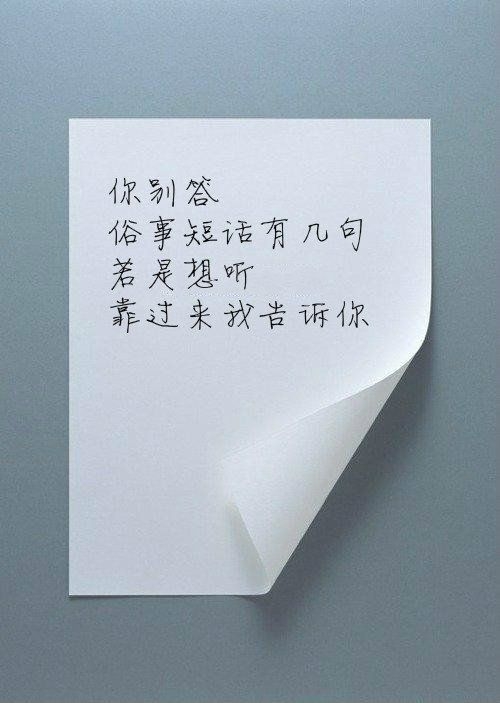 你别答
俗事短话有几句
若是想听
靠过来我告诉你